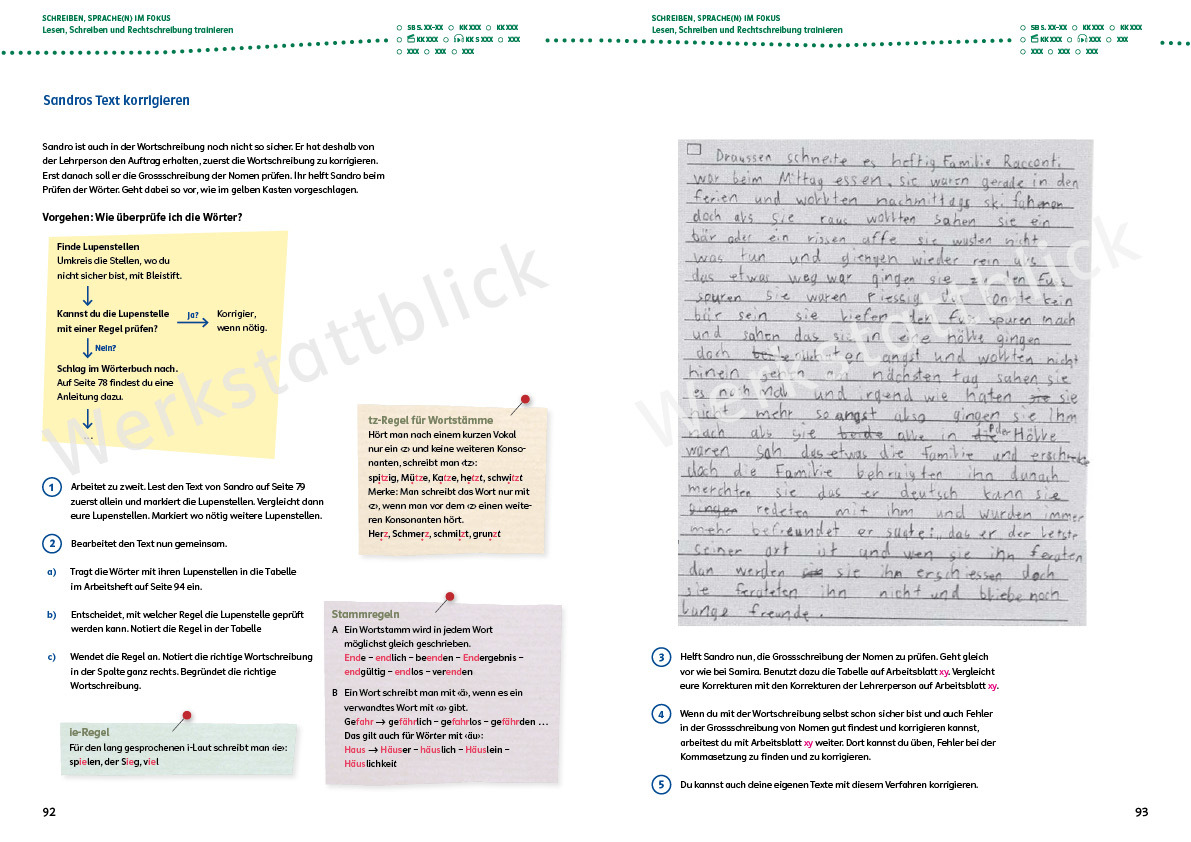 SCHREIBEN, SPRACHE(N) IM FOKUS
Lesen, Schreiben und Rechtschreibung trainieren
SB S. XX-XX KK XXX KK XXX
KK XXX KK S XXX XXX
XXX XXX XXX
Sandros Text korrigieren
Sandro ist auch in der Wortschreibung noch nicht so sicher. Er hat deshalb von
der Lehrperson den Auftrag erhalten, zuerst die Wortschreibung zu korrigieren.
Erst danach soll er die Grossschreibung der Nomen prüfen. Ihr helft Sandro beim
Prüfen der Wörter. Geht dabei so vor, wie im gelben Kasten vorgeschlagen.
Vorgehen: Wie überprüfe ich die Wörter?
Finde Lupenstellen
Umkreis die Stellen, wo du
nicht sicher bist, mit Bleistift.
Kannst du die Lupenstelle
mit einer Regel prüfen?
Ja?
Korrigier,
wenn nötig.
Nein?
Schlag im Wörterbuch nach.
Auf Seite 78 findest du eine
Anleitung dazu.
...
1 Arbeitet zu zweit. Lest den Text von Sandro auf Seite 79
zuerst allein und markiert die Lupenstellen. Vergleicht dann
eure Lupenstellen. Markiert wo nötig weitere Lupenstellen.
2 Bearbeitet den Text nun gemeinsam.
a) Tragt die Wörter mit ihren Lupenstellen in die Tabelle
im Arbeitsheft auf Seite 94 ein.
b) Entscheidet, mit welcher Regel die Lupenstelle geprüft
werden kann. Notiert die Regel in der Tabelle
c) Wendet die Regel an. Notiert die richtige Wortschreibung
in der Spalte ganz rechts. Begründet die richtige
Wortschreibung.
ie-Regel
Für den lang gesprochenen i-Laut schreibt man ‹ie›:
spielen, der Sieg, viel
tz-Regel für Wortstämme
Hört man nach einem kurzen Vokal
nur ein ‹z› und keine weiteren Konso-
nanten, schreibt man ‹tz›:
spitzig, Mütze, Katze, hetzt, schwitzt
Merke: Man schreibt das Wort nur mit
‹z›, wenn man vor dem ‹z› einen weite-
ren Konsonanten hört.
Herz, Schmerz, schmilzt, grunzt
Stammregeln
A Ein Wortstamm wird in jedem Wort
möglichst gleich geschrieben.
Ende – endlich – beenden – Endergebnis –
endgültig – endlos – verenden
B Ein Wort schreibt man mit ‹ä›, wenn es ein
verwandtes Wort mit ‹a› gibt.
Gefahr → gefährlich – gefahrlos – gefährden ...
Das gilt auch für Wörter mit ‹äu›:
Haus → Häuser – häuslich – Häuslein –
Häuslichkeit
92
SCHREIBEN, SPRACHE(N) IM FOKUS
Lesen, Schreiben und Rechtschreibung trainieren
SB S. XX-XX KK XXX KK XXX
KK XXX KK XXX XXX
XXX XXX XXX
Draussen schneite es heftig Familie Racconti
war beim Mittag essen. sie waren gerade in den
ferien und wollten nachmittags ski fahren
doch als sie raus wollten sahen sie ein
bär oder ein rissen affe sie wusten nicht
was tun und giengen wieder rein als
das etwas weg war gingen sie zu den Fus
spuren sie waren riessig das konnte kein
bär sein sie liefen den fus spuren nach
und sahen das sie in eine hölle gingen
doch angst und wollten nicht
hinein gehen am nächsten tag sahen sie
es noch mal und irgend wie haten sie
nicht mehr so angst also gingen sie ihm
nach als sie beide alle in die Hölle
waren sah das etwas die familie und erschreckte
doch die Familie behruigten ihn danach
merchten sie das er deutsch kann sie
gingen redeten mit ihm und wurden immer
mehr befreundet er sagte: das er der letzte
seiner art ist und wen sie ihn feraten
dan werden sie ihn erschiessen doch
sie ferateten ihn nicht und bliebe noch
lange freunde.
3 Helft Sandro nun, die Grossschreibung der Nomen zu prüfen. Geht gleich
vor wie bei Samira. Benutzt dazu die Tabelle auf Arbeitsblatt xy. Vergleicht
eure Korrekturen mit den Korrekturen der Lehrperson auf Arbeitsblatt xy.
4 Wenn du mit der Wortschreibung selbst schon sicher bist und auch Fehler
in der Grossschreibung von Nomen gut findest und korrigieren kannst,
arbeitest du mit Arbeitsblatt xy weiter. Dort kannst du üben, Fehler bei der
Kommasetzung zu finden und zu korrigieren.
5 Du kannst auch deine eigenen Texte mit diesem Verfahren korrigieren.
93
Werkstattblick
Werkstattblick